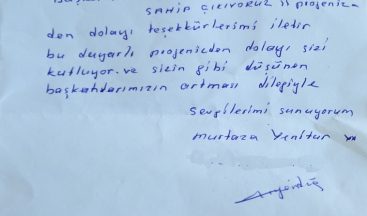 SAHİP ÇIKIYORUZ " projeniz-
den dolayı teşekkürlerimi iletir
bu duyarlı projenizden dolayı sizi
kutluyor. ve sizin gibi düşünen
başkahdarımızın artması dileğiyle
sevgilerimi sunuyorum
murtaza